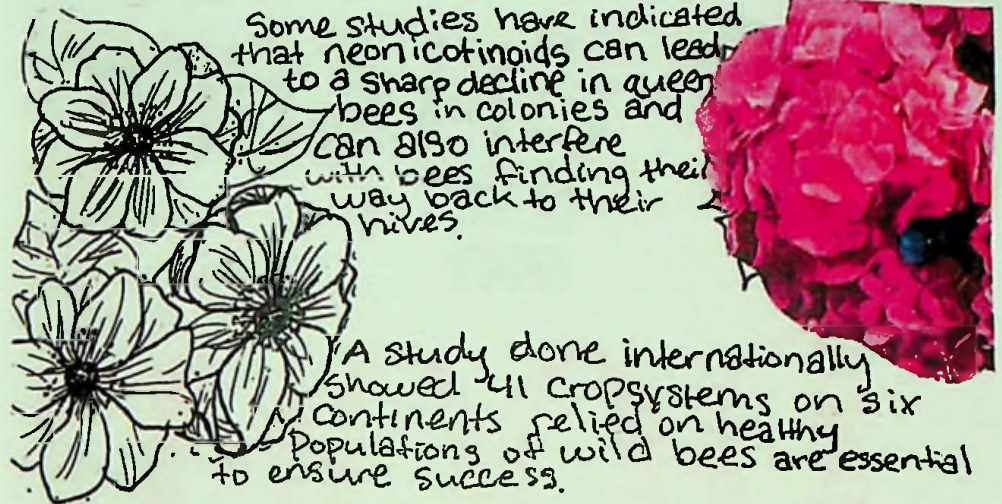 Some studies have indicated
that neonicotinoids can lead
to a sharp decline in queen
bees in colonies and
can also interfere
with bees finding their
way back to their
hives.
A study done internationally
showed 41 cropsystems on six
continents relied on healthy
populations of wild bees are essential
to ensure success.